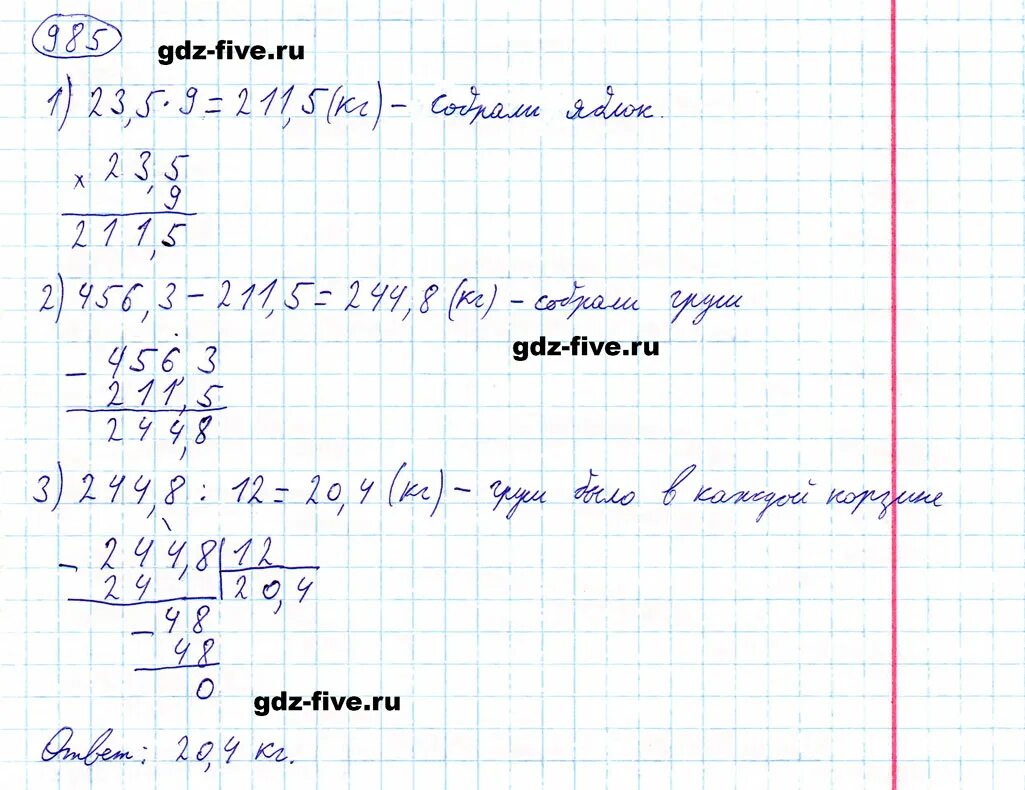 985
gdz-five.ru
1) 23,5 · 9 = 211,5 (кг) – собрали яблок.
× 23,5
9
211,5
2) 456,3 – 211,5 = 244,8 (кг) – собрали груш
gdz-five.ru
– 456 3
211,5
244,8
3) 244,8 : 12 = 20,4 (кг) – груш было в каждой корзине
– 244,8 | 12
24 20,4
– 48
48
0
gdz-five.ru
Ответ: 20,4 кг.